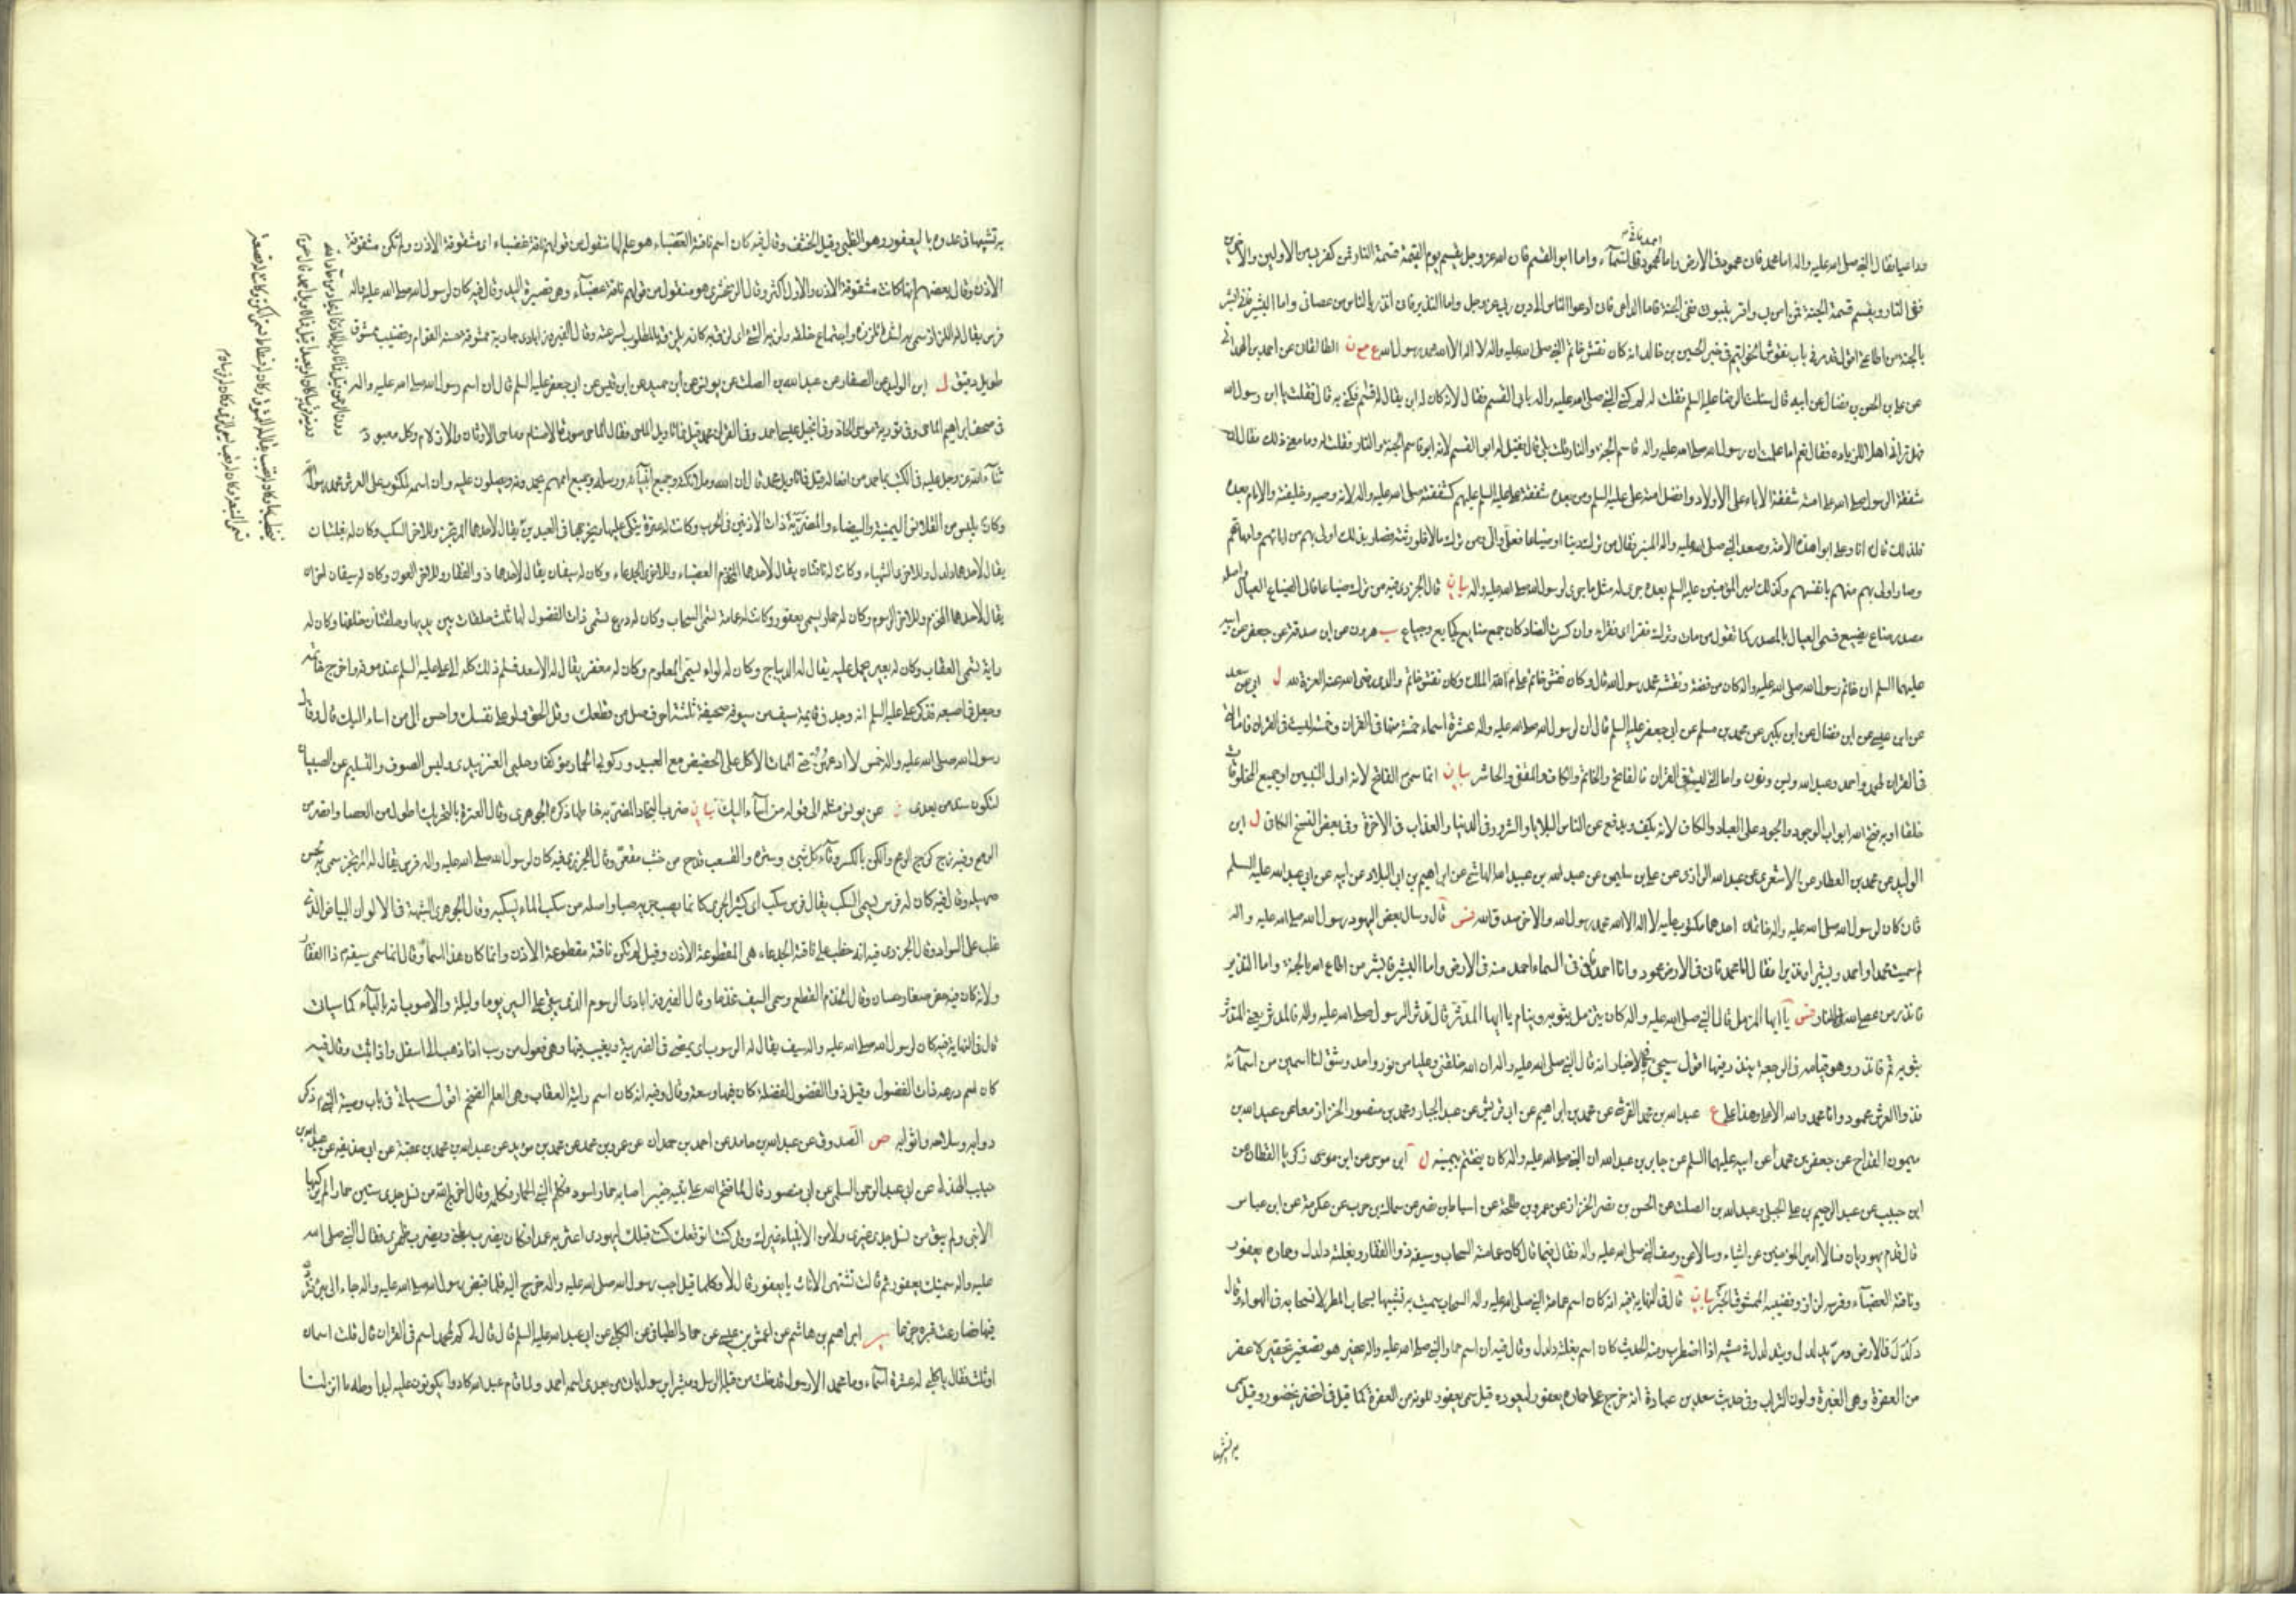 وداعيا فقال النبي صلى الله عليه واله اما محمد فان محمود في الارض واما احمد فاني محمود في السمآء واما ابو القسم فان الله عز وجل يقسم يوم القيمة قسمة النار فمن كفر بي من الاولين والآخرين
ففي النار ويقسم قسمة الجنة فمن امن بي واقر بنبوتي ففي الجنة واما الداعي فان ادعوا الناس الى دين ربي عز وجل واما النذير فان انذر بالنار من عصاني واما البشير فاني ابشر
بالجنة من اطاعني اقول قد مر في باب نقوش الخواتيم في خبر الحسين بن خالد انه كان نقش خاتم النبي صلى الله عليه واله لا اله الا الله محمد رسول الله ع مع ن الطالقاني عن احمد بن الهمداني
عن علي بن الحسن بن فضال عن ابيه قال سئلت الرضا عليه السلم فقلت له لم كني النبي صلى الله عليه واله بابي القسم فقال لانه كان له ابن يقال له قاسم فكني به قال فقلت يا ابن رسول الله
فهل تراني اهلا للزيادة فقال نعم اما علمت ان رسول الله صلى الله عليه واله قاسم الجنة والنار قلت بلى قال فقيل له ابو القسم لانه ابو قاسم الجنة والنار فقلت له وما معنى ذلك فقال ان
شفقة الرسول صلى الله على امته شفقة الاباء على الاولاد وافضل امته علي عليه السلم ومن بعده شفقة علي عليه السلم عليهم كشفقته صلى الله عليه واله لانه وصيه وخليفته والامام بعده
فلذلك قال انا وعلي ابوا هذه الامة وصعد النبي صلى الله عليه واله المنبر فقال من ترك دينا او ضياعا فعلي والي ومن ترك مالا فلورثته فصار بذلك اولى بهم من ابائهم وامهاتهم
وصار اولى بهم منهم بانفسهم وكذلك امير المؤمنين عليه السلم بعده جرى له مثل ما جرى لرسول الله صلى الله عليه واله بيان قال الجزري فيه من ترك ضياعا فالي الضياع العيال واصله
مصدر ضاع يضيع فسمي العيال بالمصدر كما تقول من مات وترك فقرا اي فقراء وان كسرت الضاد كان جمع ضايع كجايع وجياع ب هرون عن ابن صدقة عن جعفر عن ابيه
عليهما السلم ان خاتم رسول الله صلى الله عليه واله كان من فضة ونقشه محمد رسول الله قال وكان نقش خاتم علي الله الملك وكان نقش خاتم والدي رضي الله عنه العزة لله ل ابي عن سعد
عن ابن عيسى عن ابن فضال عن ابن بكير عن محمد بن مسلم عن ابي جعفر عليه السلم قال ان لرسول الله صلى الله عليه واله عشرة اسماء خمسة منها في القران وخمسة ليست في القران فاما التي
في القران محمد واحمد وعبد الله ويس ونون واما التي ليست في القران فالفاتح والخاتم والكاف والمقفى والحاشر بيان انما سمي الفاتح لانه اول النبيين او جميع المخلوقات
خلقا او به فتح الله ابواب الوجود والجود على العباد والكاف لانه يكف ويدفع عن الناس البلايا والشرور في الدنيا والعذاب في الاخرة وفي بعض النسخ الكافي ل ابن
الوليد عن محمد بن العطار عن الاشعري عن عبد الله الرازي عن علي بن سليمن عن عبد الله بن عبيد الله الهاشمي عن ابراهيم بن ابي البلاد عن ابيه عن ابي عبد الله عليه السلم
قال كان لرسول الله صلى الله عليه واله خاتمان احدهما مكتوب عليه لا اله الا الله محمد رسول الله والاخر صدق الله فس قال وسال بعض اليهود رسول الله صلى الله عليه واله
لم سميت محمدا واحمد وبشيرا ونذيرا فقال اما محمد فاني في الارض محمود واما احمد فاني في السماء احمد منه في الارض واما البشير فابشر من اطاع الله بالجنة واما النذير
فانذر من عصى الله بالنار فس يا ايها المزمل قال النبي صلى الله عليه واله كان يتزمل بثوبه وينام يا ايها المدثر قال تدثر الرسول صلى الله عليه واله فالمدثر يعني المتدثر
بثوبه قم فانذر وهو قيامه في الرجعة ينذر فيها اقول سيجيء في الاخبار انه قال النبي صلى الله عليه واله ان الله خلقني وعليا من نور واحد وشق لنا اسمين من اسمآئه
فذو العرش محمود وانا محمد والله الاعلى وهذا علي ع عبد الله بن محمد القرشي عن محمد بن ابراهيم عن ابي قريش عن عبد الجبار ومحمد بن منصور الخزاز معا عن عبد الله بن
ميمون القداح عن جعفر بن محمد عن ابيه عليهما السلم عن جابر بن عبد الله ان النبي صلى الله عليه واله كان يتختم بيمينه ل ابن موسى عن ابن زكريا القطان عن
ابن حبيب عن عبد الرحيم بن علي الجبلي وعبد الله بن الصلت عن الحسن بن نصر الخزاز عن عمرو بن طلحة عن اسباط بن نصر عن سماك بن حرب عن عكرمة عن ابن عباس
قال قدم يهوديان فسالا امير المؤمنين عن اشياء وسالا عن وصف النبي صلى الله عليه واله فقال فيما قال كان عمامته السحاب وسيفه ذو الفقار وبغلته دلدل وحماره يعفور
وناقته العضبآء وفرسه لزاز وقضيبه الممشوق الخبر بيان قال في النهاية فيه انه كان اسم عمامة النبي صلى الله عليه واله السحاب سميت به تشبيها بسحاب المطر لانسحابه في الهواء وقال
دلدل في الارض ومر يدلدل ويتدلدل في مشيه اذا اضطرب ومنه الحديث كان اسم بغلته دلدل وقال فيه ان اسم حمار النبي صلى الله عليه واله عفير هو تصغير تحقير لاعفر
من العفرة وهي الغبرة ولون التراب وفي حديث سعد بن عبادة انه خرج على حماره يعفور ليعوده قيل سمي يعفور للونه من العفرة كما قيل في اخضر يخضور وقيل سمي
به تشبيها
به تشبيها في عدوه باليعفور وهو الظبي وقيل الخشف وقال فيه كان اسم ناقته العضباء هو علم لها منقول من قولهم ناقة عضباء اي مشقوقة الاذن ولم تكن مشقوقة
الاذن وقال بعضهم انها كانت مشقوقة الاذن والاول اكثر وقال الزمخشري هو منقول من قولهم ناقة عضبآء وهي قصيرة اليد وقال فيه كان لرسول الله صلى الله عليه واله
فرس يقال له اللزاز سمي به لشدة تلززه واجتماع خلقه ولز به الشيء اي لزق به كانه يلزق بالمطلوب لسرعته وقال الفيروزابادي جارية ممشوقة حسنة القوام وقضيب ممشوق
طويل دقيق ل ابن الوليد عن الصفار عن عبد الله بن الصلت عن يونس عن ابن حميد عن ابن قيس عن ابي جعفر عليه السلم قال ان اسم رسول الله صلى الله عليه واله
في صحف ابراهيم الماحي وفي تورية موسى الحاد وفي انجيل عيسى احمد وفي الفرقان محمد قيل فما تاويل الماحي فقال الماحي صورة الاصنام وماحي الاوثان والازلام وكل معبود دون
ثنآء الله عز وجل عليه في الكتب بما احمد من افعاله قيل فما تاويل محمد قال ان الله وملائكته وجميع انبيآئه ورسله وجميع اممهم يحمدونه ويصلون عليه وان اسمه لمكتوب على العرش محمد رسول الله
وكان يلبس من القلانس اليمنية والبيضاء والمضربة ذات الاذنين في الحرب وكانت له عنزة يتكي عليها ويخرجها في العيدين يقال لاحدهما المرتجز وللاخر السكب وكان له بغلتان
يقال لاحدهما دلدل وللاخرى الشهباء وكانت له ناقتان يقال لاحدهما العضباء وللاخرى الجدعاء وكان له سيفان يقال لاحدهما ذو الفقار وللاخر العون وكان له سيفان اخران
يقال لاحدهما المخذم وللاخر الرسوم وكان له حمار يسمى يعفور وكانت له عمامة تسمى السحاب وكان له درع تسمى ذات الفضول لها ثلث حلقات بين يديها وحلقتان خلفها وكان له
راية تسمى العقاب وكان له بعير يحمل عليه يقال له الديباج وكان له لواء يسمى المعلوم وكان له مغفر يقال له الاسعد فسلم ذلك كله الى علي عليه السلم عند موته واخرج خاتمه
وجعل في اصبعه فذكر علي عليه السلم انه وجد في قايمة سيف من سيوفه صحيفة ثلثة احرف صل من قطعك وقل الحق ولو على نفسك واحسن الى من اساء اليك قال وقال
رسول الله صلى الله عليه واله خمس لا ادعهن حتى الممات الاكل على الحضيض مع العبيد وركوبي الحمار مؤكفا وحلبي العنز بيدي ولبس الصوف والتسليم على الصبيان
لتكون سنة من بعدي عن يونس مثله الى قوله من اسآء اليك بيان ضرب النجاد المضربة خاطها ذكره الجوهري وقال العنزة بالتحريك اطول من العصا واقصر من
الرمح وفيه زج كزج الرمح والكن بالكسر وقآء كل شيء وستره والقعب قدح من خشب مقعر وقال الجزري فيه كان لرسول الله صلى الله عليه واله فرس يقال له المرتجز سمي به لحسن
صهيله وقال فيه كان له فرس يسمى السكب يقال فرس سكب اي كثير الجري كانما يصب جريه صبا واصله من سكب الماء يسكبه وقال الجوهري الشهبة في الالوان البياض الذي
غلب على السواد وقال الجزري فيه انه خطب على ناقته الجدعاء هي المقطوعة الاذن وقيل لم تكن ناقته مقطوعة الاذن وانما كان هذا اسما وقال انما سمي سيفه ذا الفقار
ولانه كان فيه حفر صغار حسان وقال المخذم القطع وسمي السيف مخذما وقال الفيروزابادي الرسوم الذي يبقى على السير يوما وليلة والاصوب انه بالبآء كما سيات
قال في النهاية فيه كان لرسول الله صلى الله عليه واله سيف يقال له الرسوب اي يمضي في الضريبة ويغيب فيها وهي فعول من رسب اذا ذهب الى اسفل واذا ثبت وقال فيه
كان اسم درعه ذات الفضول وقيل ذو الفضول لفضلة كان فيها وسعة وقال وفيه انه كان اسم رايته العقاب وهي العلم الضخم اقول سياتي في باب وصية النبي ذكر
دوابه وسلاحه واثوابه ص الصدوق عن عبد الله بن حامد عن احمد بن حمدان عن عمرو بن محمد عن محمد بن مؤيد عن عبد الله بن محمد بن عقبة عن ابي حذيفة عن عبد الله بن
حبيب الهذلي عن ابي عبد الرحمن السلمي عن ابي منصور قال لما فتح الله على نبيه خيبر اصابه حمار اسود فكلم النبي الحمار فكلمه وقال اخرج الله من نسل جدي ستين حمارا لم يركبها
الا نبي ولم يبق من نسل جدي غيري ولا من الانبياء غيرك وقد كنت اتوقعك كنت قبلك ليهودي اعثر به عمدا فكان يضرب بطني ويضرب ظهري فقال النبي صلى الله
عليه واله سميتك يعفور ثم قال تشتهي الاناث يا يعفور قال لا وكلما قيل اجب رسول الله صلى الله عليه واله خرج اليه فلما قبض رسول الله صلى الله عليه واله جاء الى بئر فتردى
فيها فصارت قبره جزعا ير ابراهيم بن هاشم عن اعمش بن عيسى عن حماد الطيافي عن الكلبي عن ابي عبد الله عليه السلم قال قال لي كم لمحمد اسم في القران قال قلت اسمان
او ثلث فقال يا كلبي له عشرة اسمآء وما محمد الا رسول قد خلت من قبله الرسل ومبشرا برسول ياتي من بعدي اسمه احمد ولما قام عبد الله كادوا يكونون عليه لبدا وطه ما انزلنا